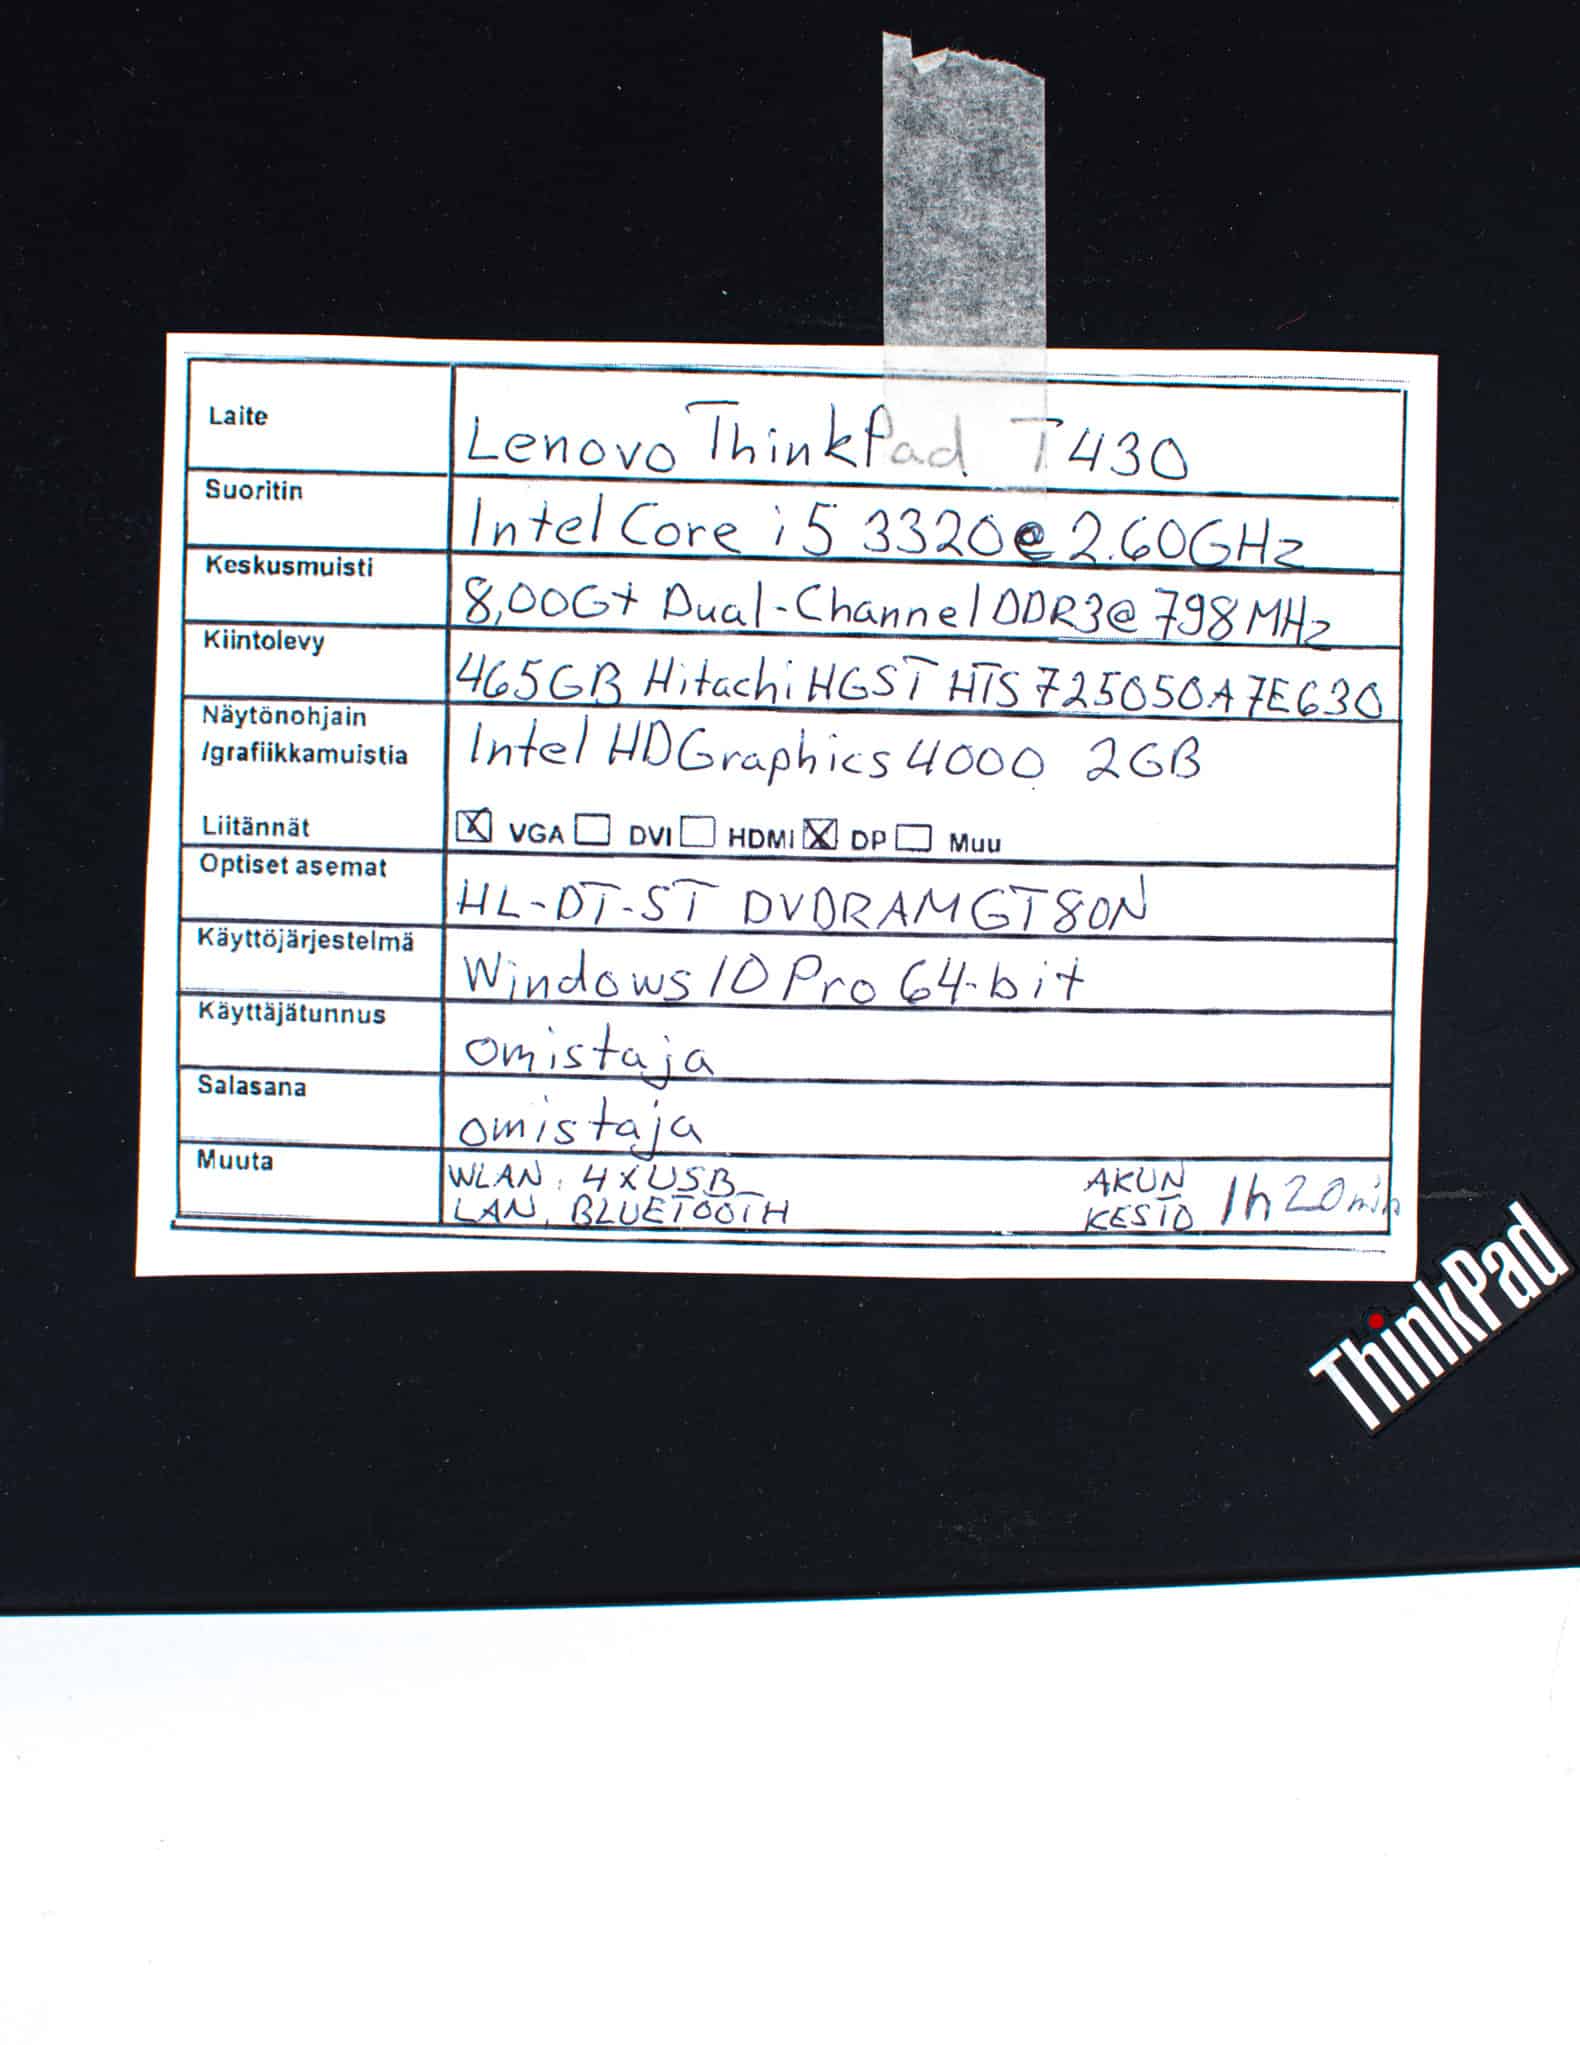 Laite Lenovo ThinkPad T430
Suoritin Intel Core i5 3320@2.60GHz
Keskusmuisti 8,00Gt Dual-Channel DDR3@798MHz
Kiintolevy 465GB Hitachi HGST HTS725050A7E630
Näytönohjain
/grafiikkamuistia Intel HDGraphics4000 2GB
Liitännät ☒ VGA ☐ DVI ☐ HDMI ☒ DP ☐ Muu
Optiset asemat HL-DT-ST DVDRAMGT80N
Käyttöjärjestelmä Windows 10 Pro 64-bit
Käyttäjätunnus omistaja
Salasana omistaja
Muuta WLAN, 4xUSB AKUN
LAN, BLUETOOTH KESTO 1h 20min
ThinkPad